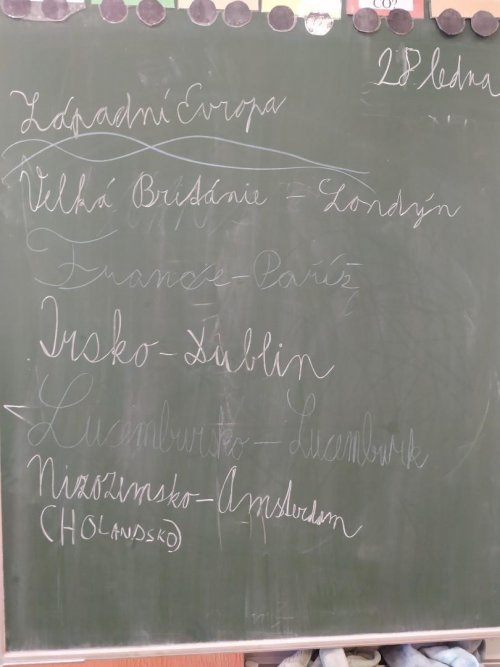 CO2
28 ledna
Západní Evropa
Velká Británie - Londýn
Francie - Paříž
Irsko - Dublin
Lucembursko - Lucemburk
Nizozemsko - Amsterdam
(HOLANDSKO)